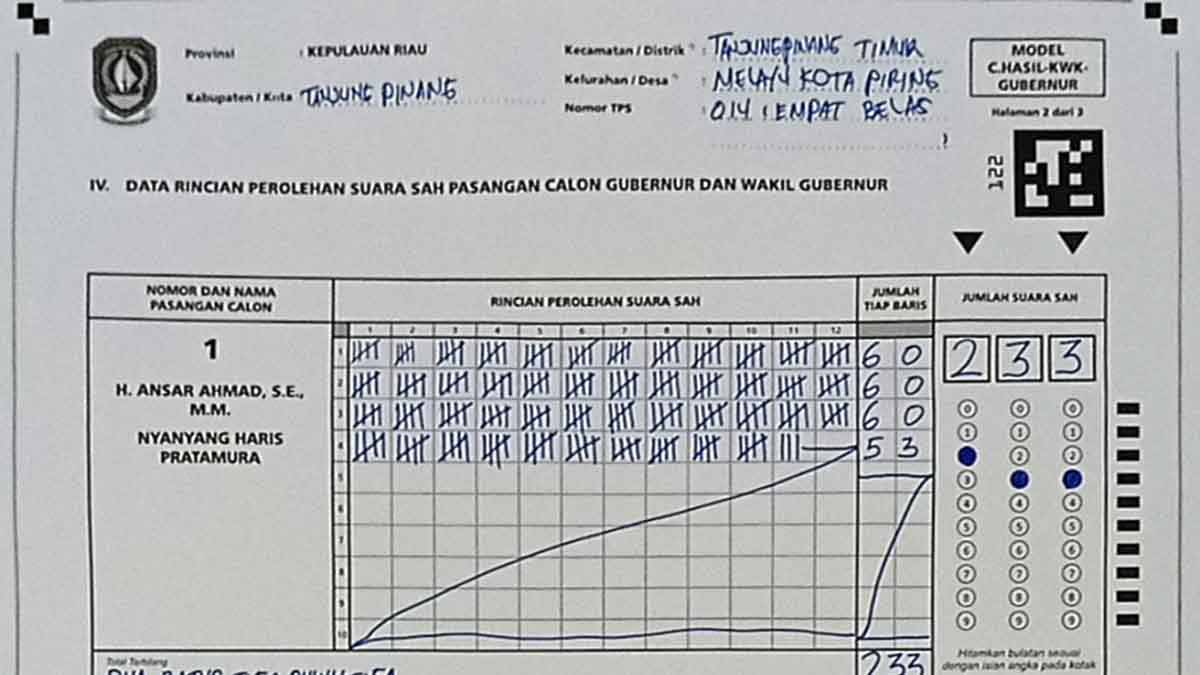 Provinsi : KEPULAUAN RIAU
Kabupaten / Kota TANJUNG PINANG
Kecamatan / Distrik *) : TANJUNGPINANG TIMUR
Kelurahan / Desa *) : MELAYU KOTA PIRING
Nomor TPS : 014 ( EMPAT BELAS
)
MODEL
C.HASIL-KWK-
GUBERNUR
Halaman 2 dari 3
122
IV. DATA RINCIAN PEROLEHAN SUARA SAH PASANGAN CALON GUBERNUR DAN WAKIL GUBERNUR
NOMOR DAN NAMA
PASANGAN CALON
RINCIAN PEROLEHAN SUARA SAH
JUMLAH
TIAP BARIS
JUMLAH SUARA SAH
1 2 3 4 5 6 7 8 9 10 11 12
1
H. ANSAR AHMAD, S.E.,
M.M.
NYANYANG HARIS
PRATAMURA
1 6 0
2 6 0
3 6 0
4 5 3
5
6
7
8
9
10
2 3 3
0 0 0
1 1 1
2 2
3
4 4 4
5 5 5
6 6 6
7 7 7
8 8 8
9 9 9
Total Terbilang
233
Hitamkan bulatan sesuai
dengan isian angka pada kotak